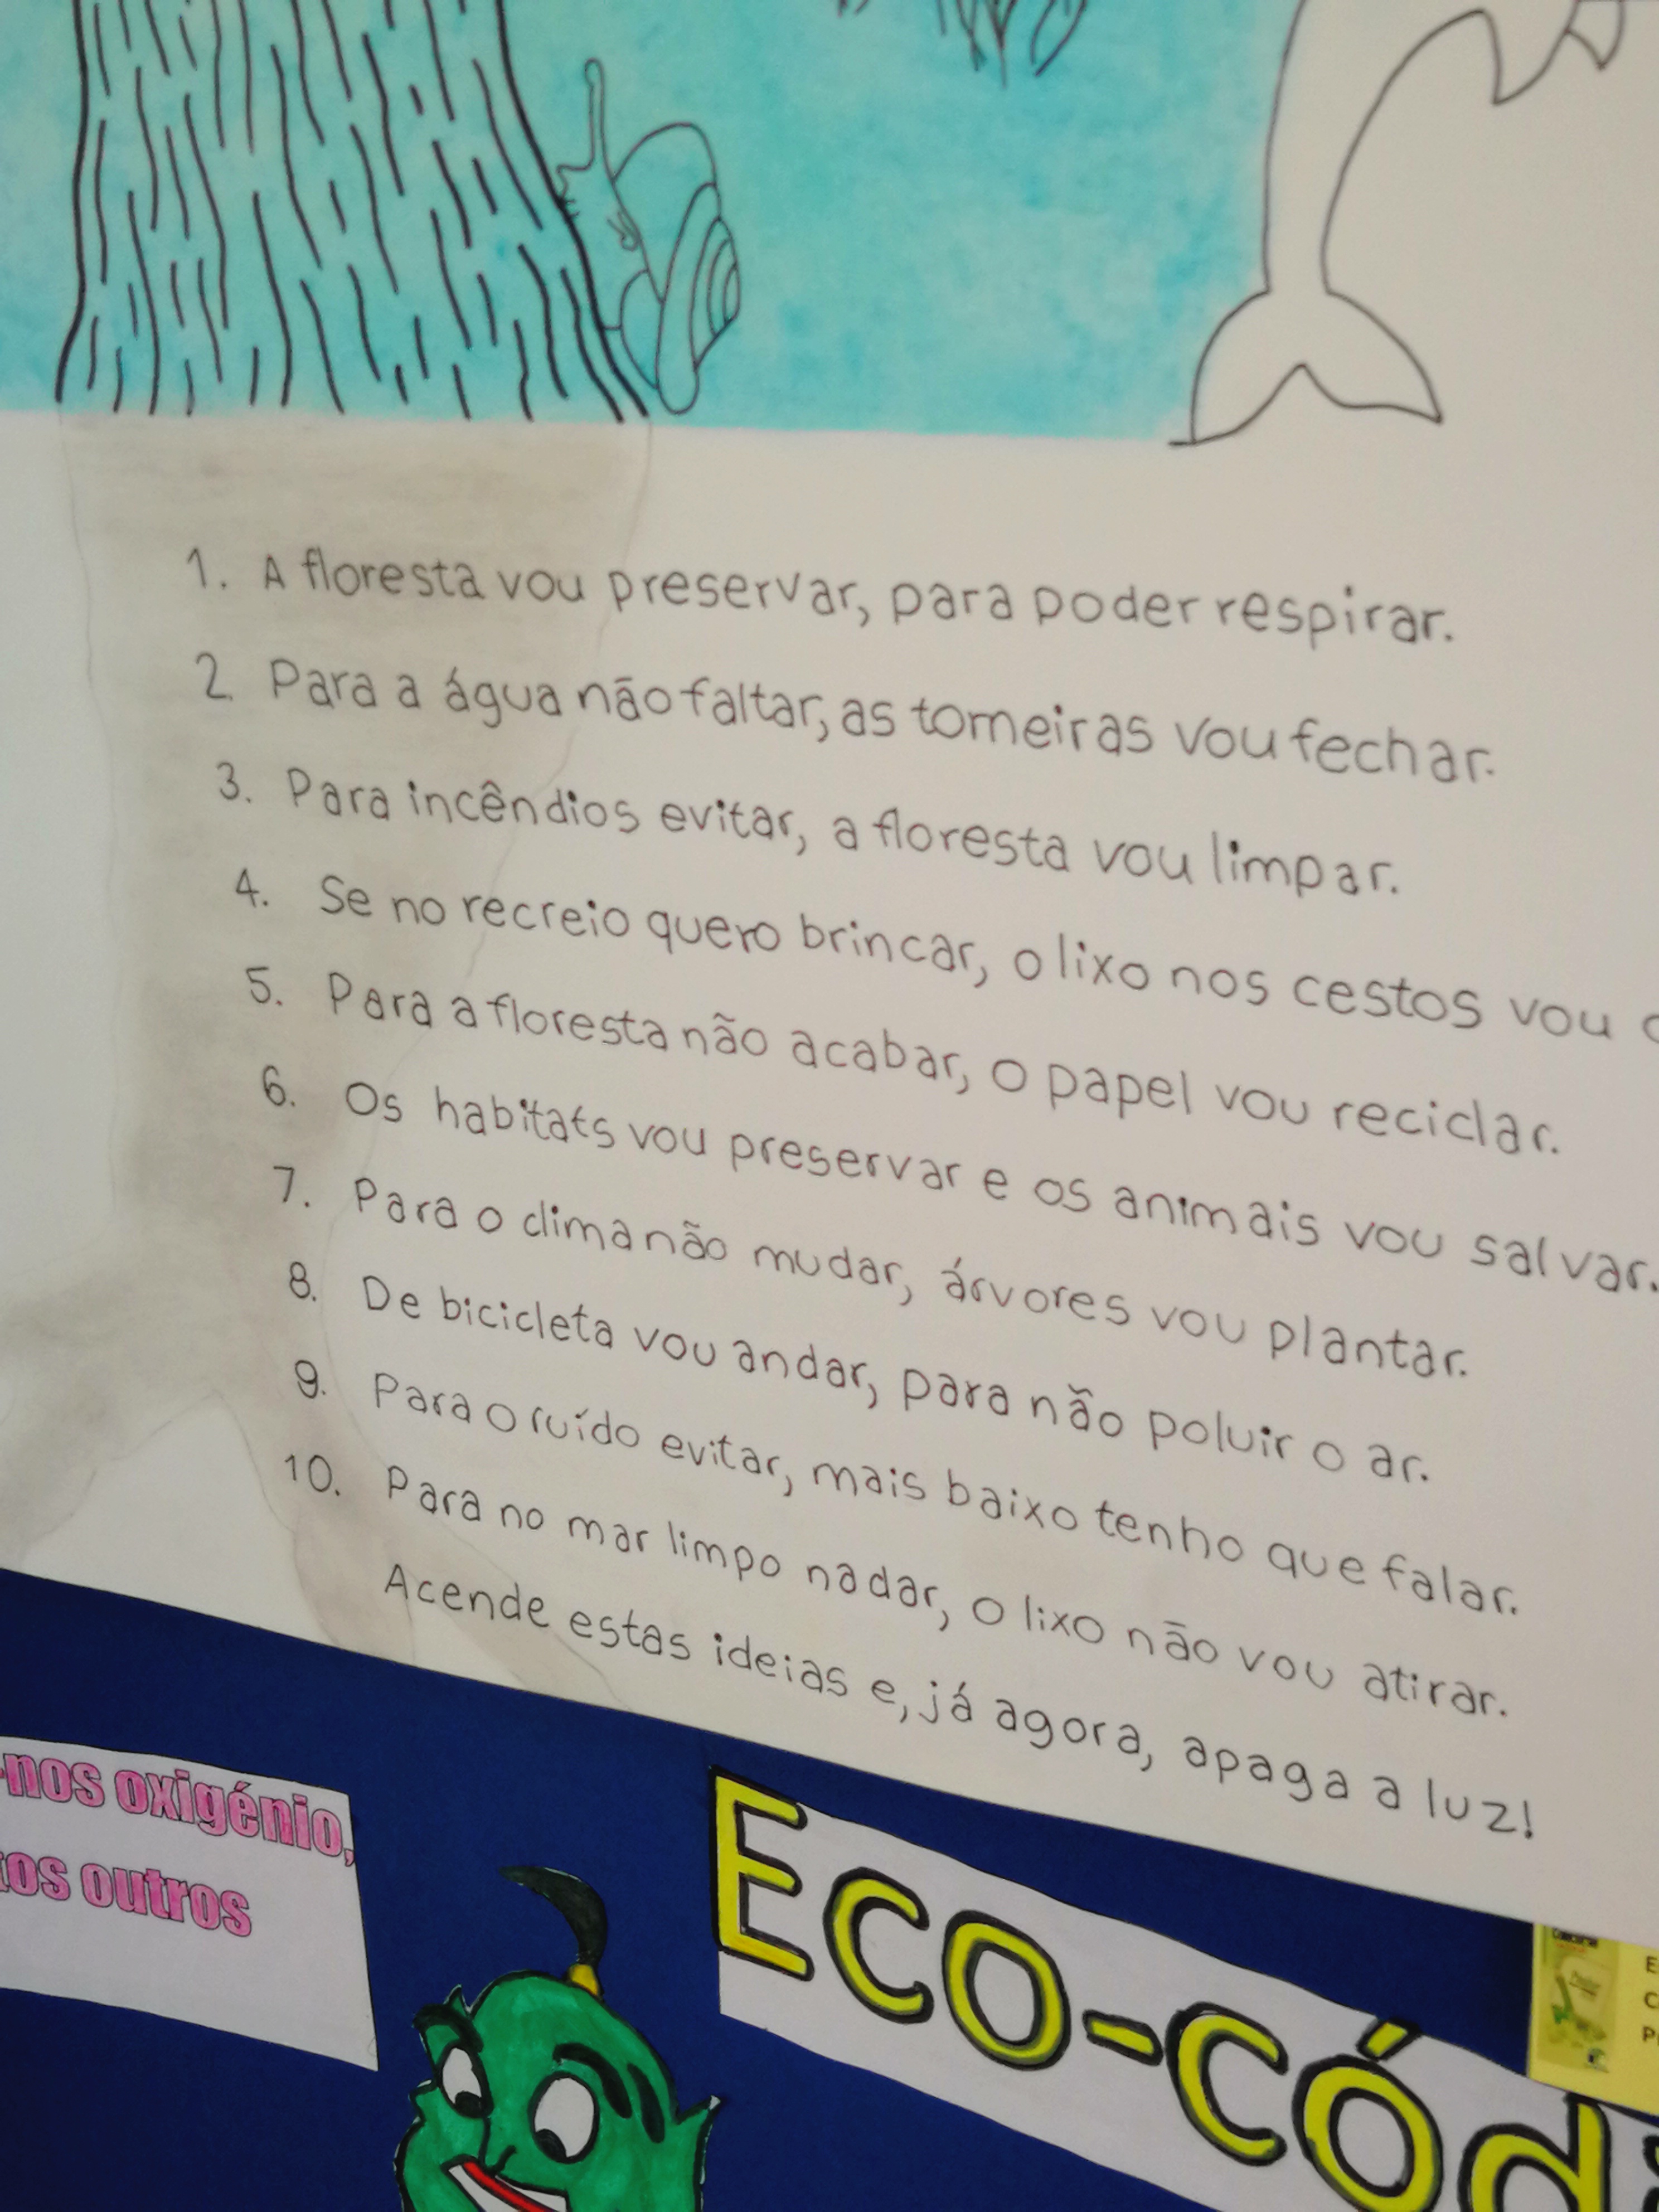 1. A floresta vou preservar, para poder respirar.
2. Para a água não faltar, as torneiras vou fechar.
3. Para incêndios evitar, a floresta vou limpar.
4. Se no recreio quero brincar, o lixo nos cestos vou
5. Para a floresta não acabar, o papel vou reciclar.
6. Os habitats vou preservar e os animais vou salvar.
7. Para o clima não mudar, árvores vou plantar.
8. De bicicleta vou andar, para não poluir o ar.
9. Para o ruído evitar, mais baixo tenho que falar.
10. Para no mar limpo nadar, o lixo não vou atirar.
Acende estas ideias e, já agora, apaga a luz!
-nos oxigénio,
outros
Eco-Cód